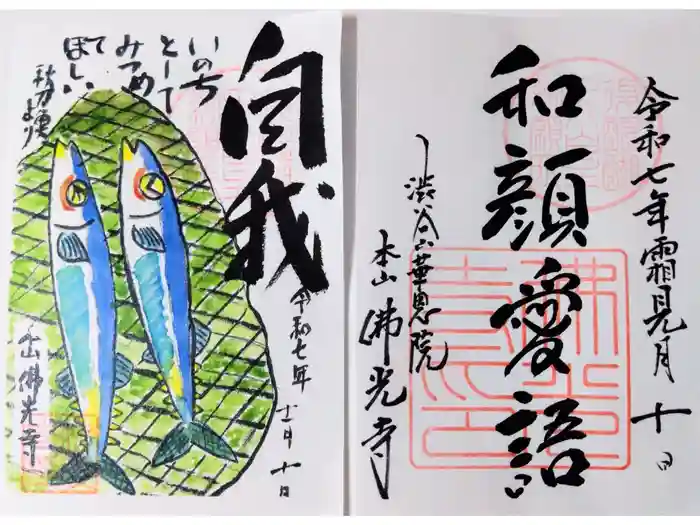 令和七年霜見月十日
和顔愛語
渋谷山華恩院
本山佛光寺
自我
令和七年十一月十日
いのち
として
みつめ
て
ほしい
秋刀魚
より
本山佛光寺